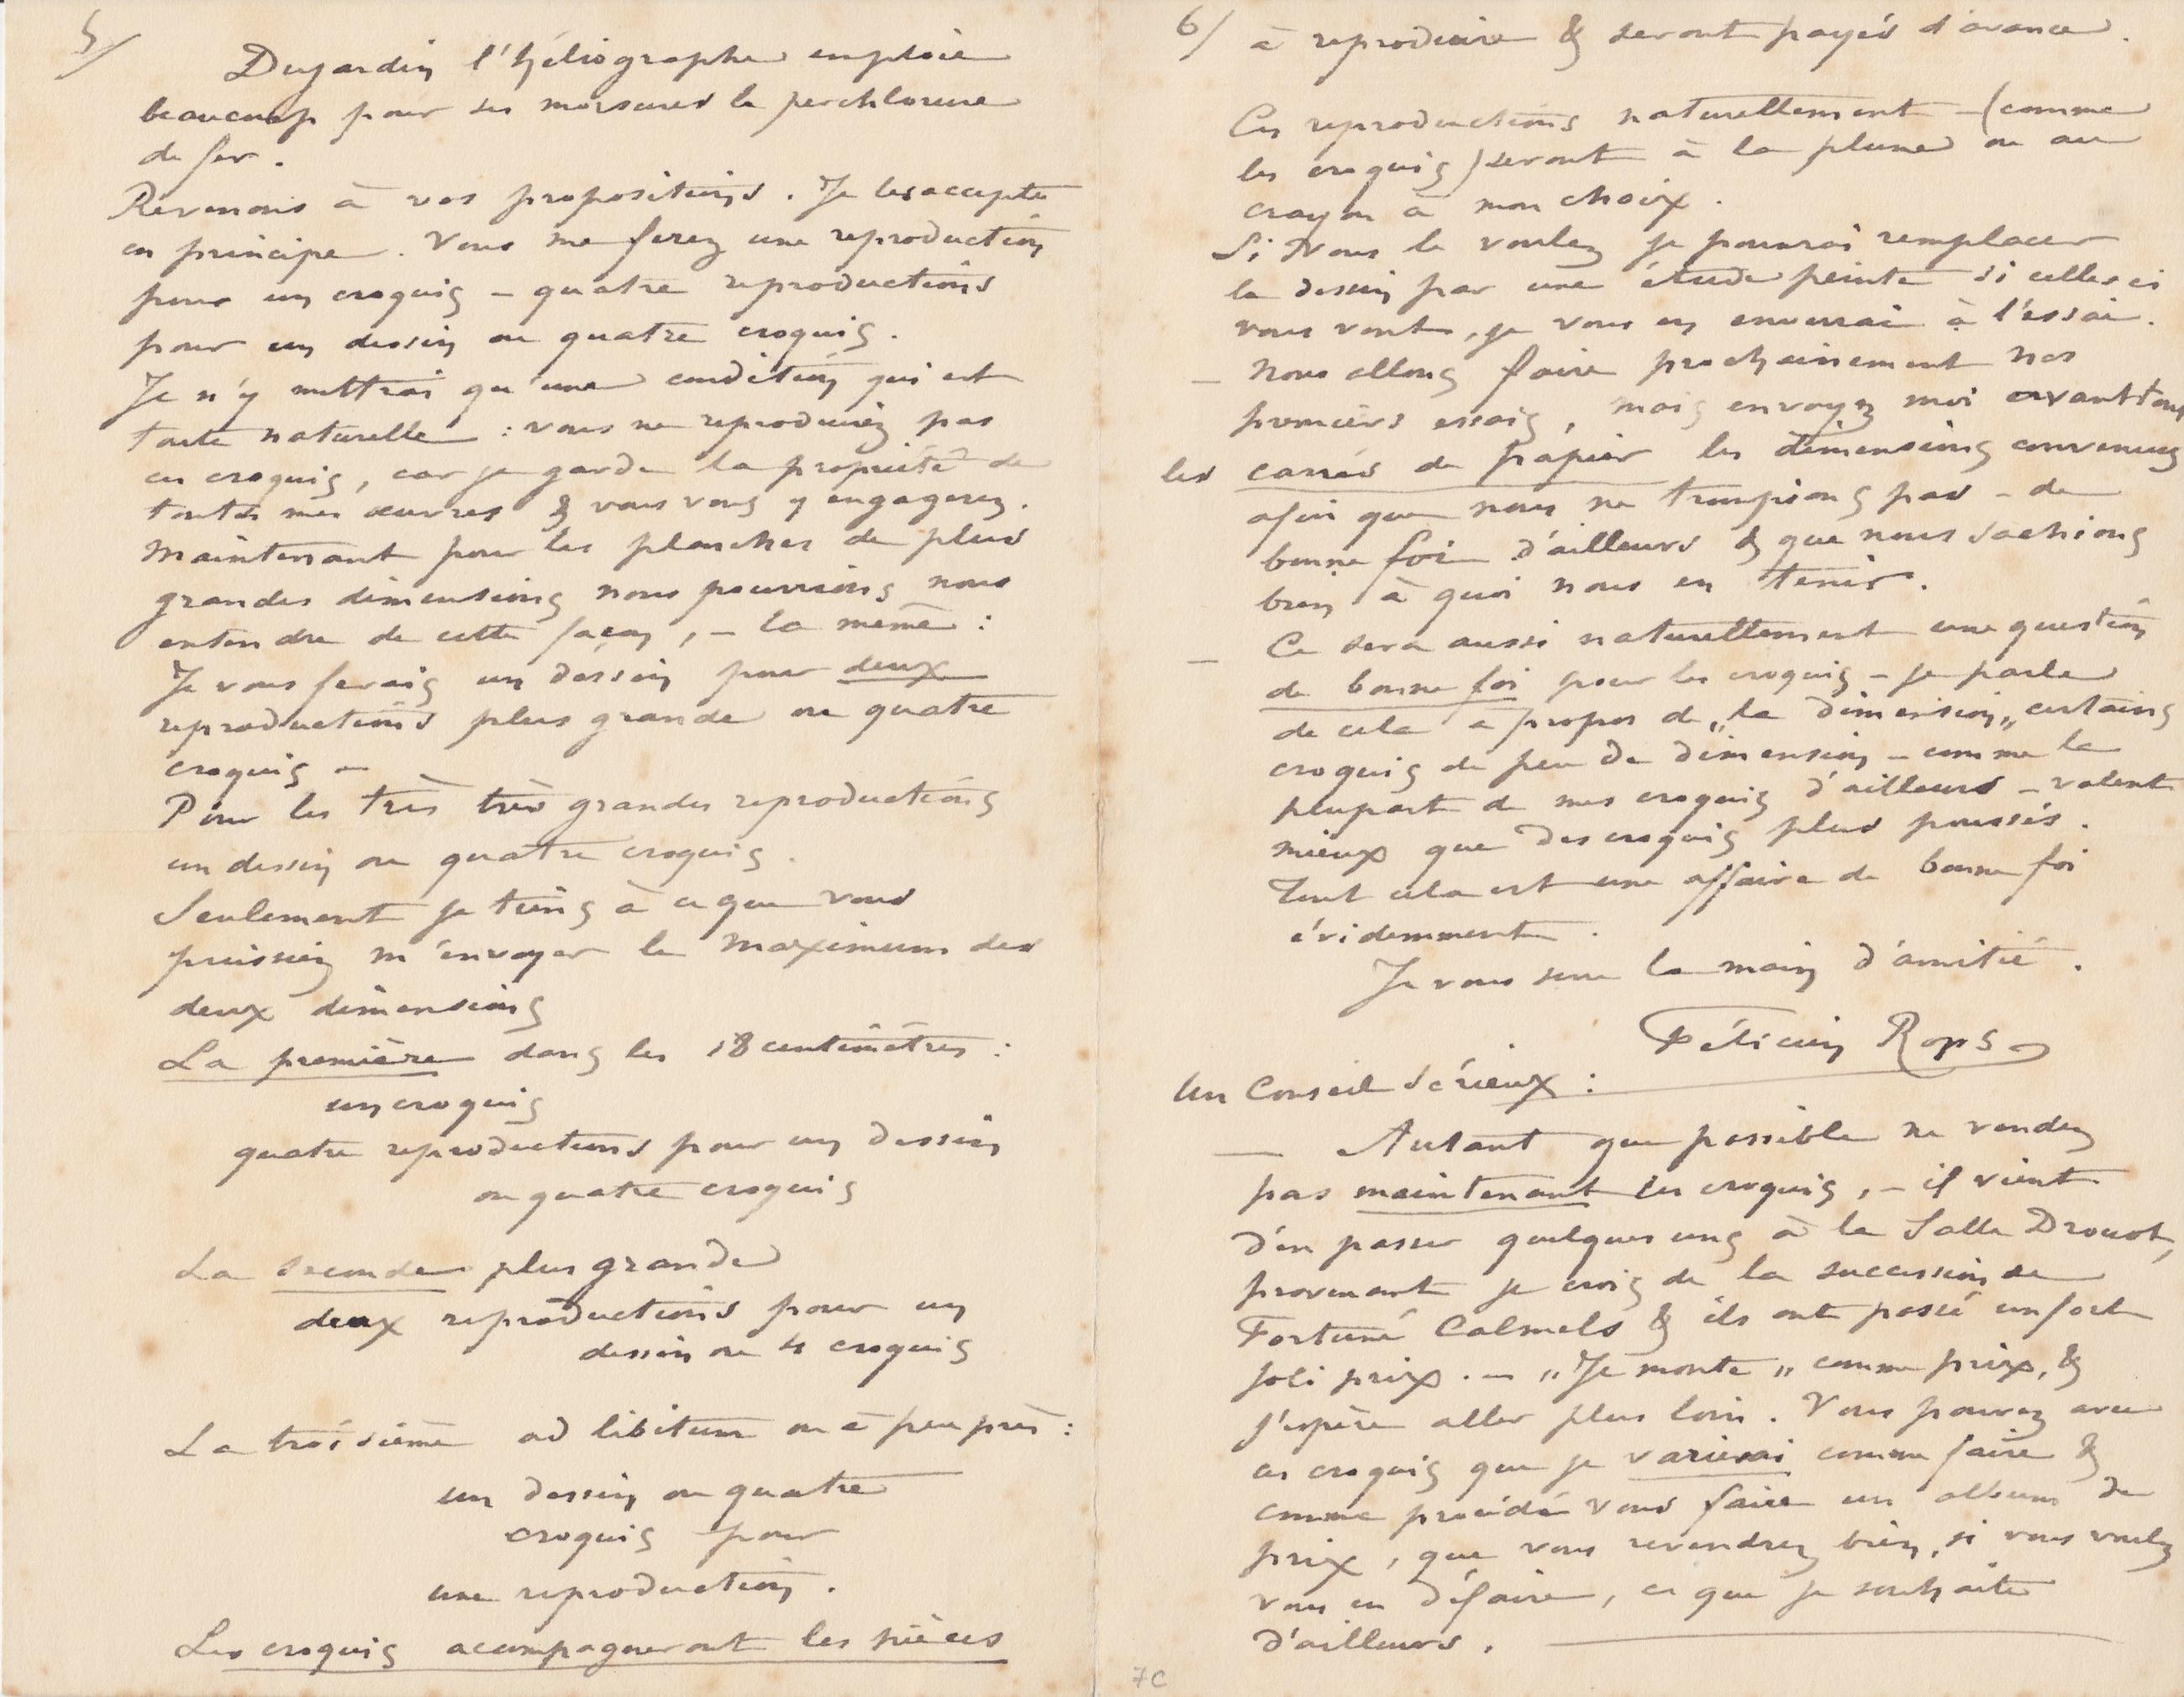 5/
Dujardin l'héliographe emploie
beaucoup pour ses morsures le perchlorure
de fer.
Revenons à vos propositions. Je les accepte
en principe. Vous me ferez une reproduction
pour un croquis – quatre reproductions
pour un dessin ou quatre croquis.
Je n'y mettrai qu'une condition qui est
toute naturelle : vous ne reproduirez pas
ces croquis, car je garde la propriété de
toutes mes œuvres & vous vous y engagerez.
Maintenant pour les planches de plus
grandes dimensions nous pourrions nous
entendre de cette façon, – la même :
Je vous ferais un dessin pour deux
reproductions plus grande ou quatre
croquis –
Pour les très très grandes reproductions
un dessin ou quatre croquis.
Seulement je tiens à ce que vous
puissiez m'envoyer le maximum des
deux dimensions
La première dans les 18 centimètres :
un croquis
quatre reproductions pour un dessin
ou quatre croquis
La seconde plus grande
deux reproductions pour un
dessin ou 4 croquis
La troisième ad libitum ou à peu près :
un dessin ou quatre
croquis pour
une reproduction.
Les croquis acompagneront les pièces
6/ à reproduire & seront payés d'avance.
Ces reproductions naturellement – (comme
les croquis) seront à la plume ou au
crayon à mon choix.
Si Vous le voulez je pourrai remplacer
le dessin par une étude peinte si celles ci
vous vont, je vous en enverrai à l'essai.
– Nous allons faire prochainement nos
premiers essais, mais envoyez moi avant tout
les carrés de papier les dimensions convenues
afin que nous ne trompions pas – de
bonne foi d'ailleurs & que nous sachions
bien à quoi nous en tenir.
– Ce sera aussi naturellement une question
de bonne foi pour les croquis – je parle
de cela à propos de „la dimension„ certains
croquis de peu de dimension – comme la
plupart de mes croquis d'ailleurs – valent
mieux que des croquis plus poussés.
Tout cela est une affaire de bonne foi
évidemment.
Je vous serre la main d'amitié.
Félicien Rops
Un Conseil Sérieux :
– Autant que possible ne vendez
pas maintenant les croquis, – il vient
d'en passer quelques uns à la Salle Drouot,
provenant je crois de la succession de
Fortuné Calmels & ils ont passé un fort
joli prix. – „Je monte„ comme prix, &
j'espère aller plus loin. Vous pouvez avec
ces croquis que je varierai comme faire &
comme procédé vous faire un album de
prix, que vous revendrez bien, si vous voulez
vous en défaire, ce que je souhaite
d'ailleurs.
7C